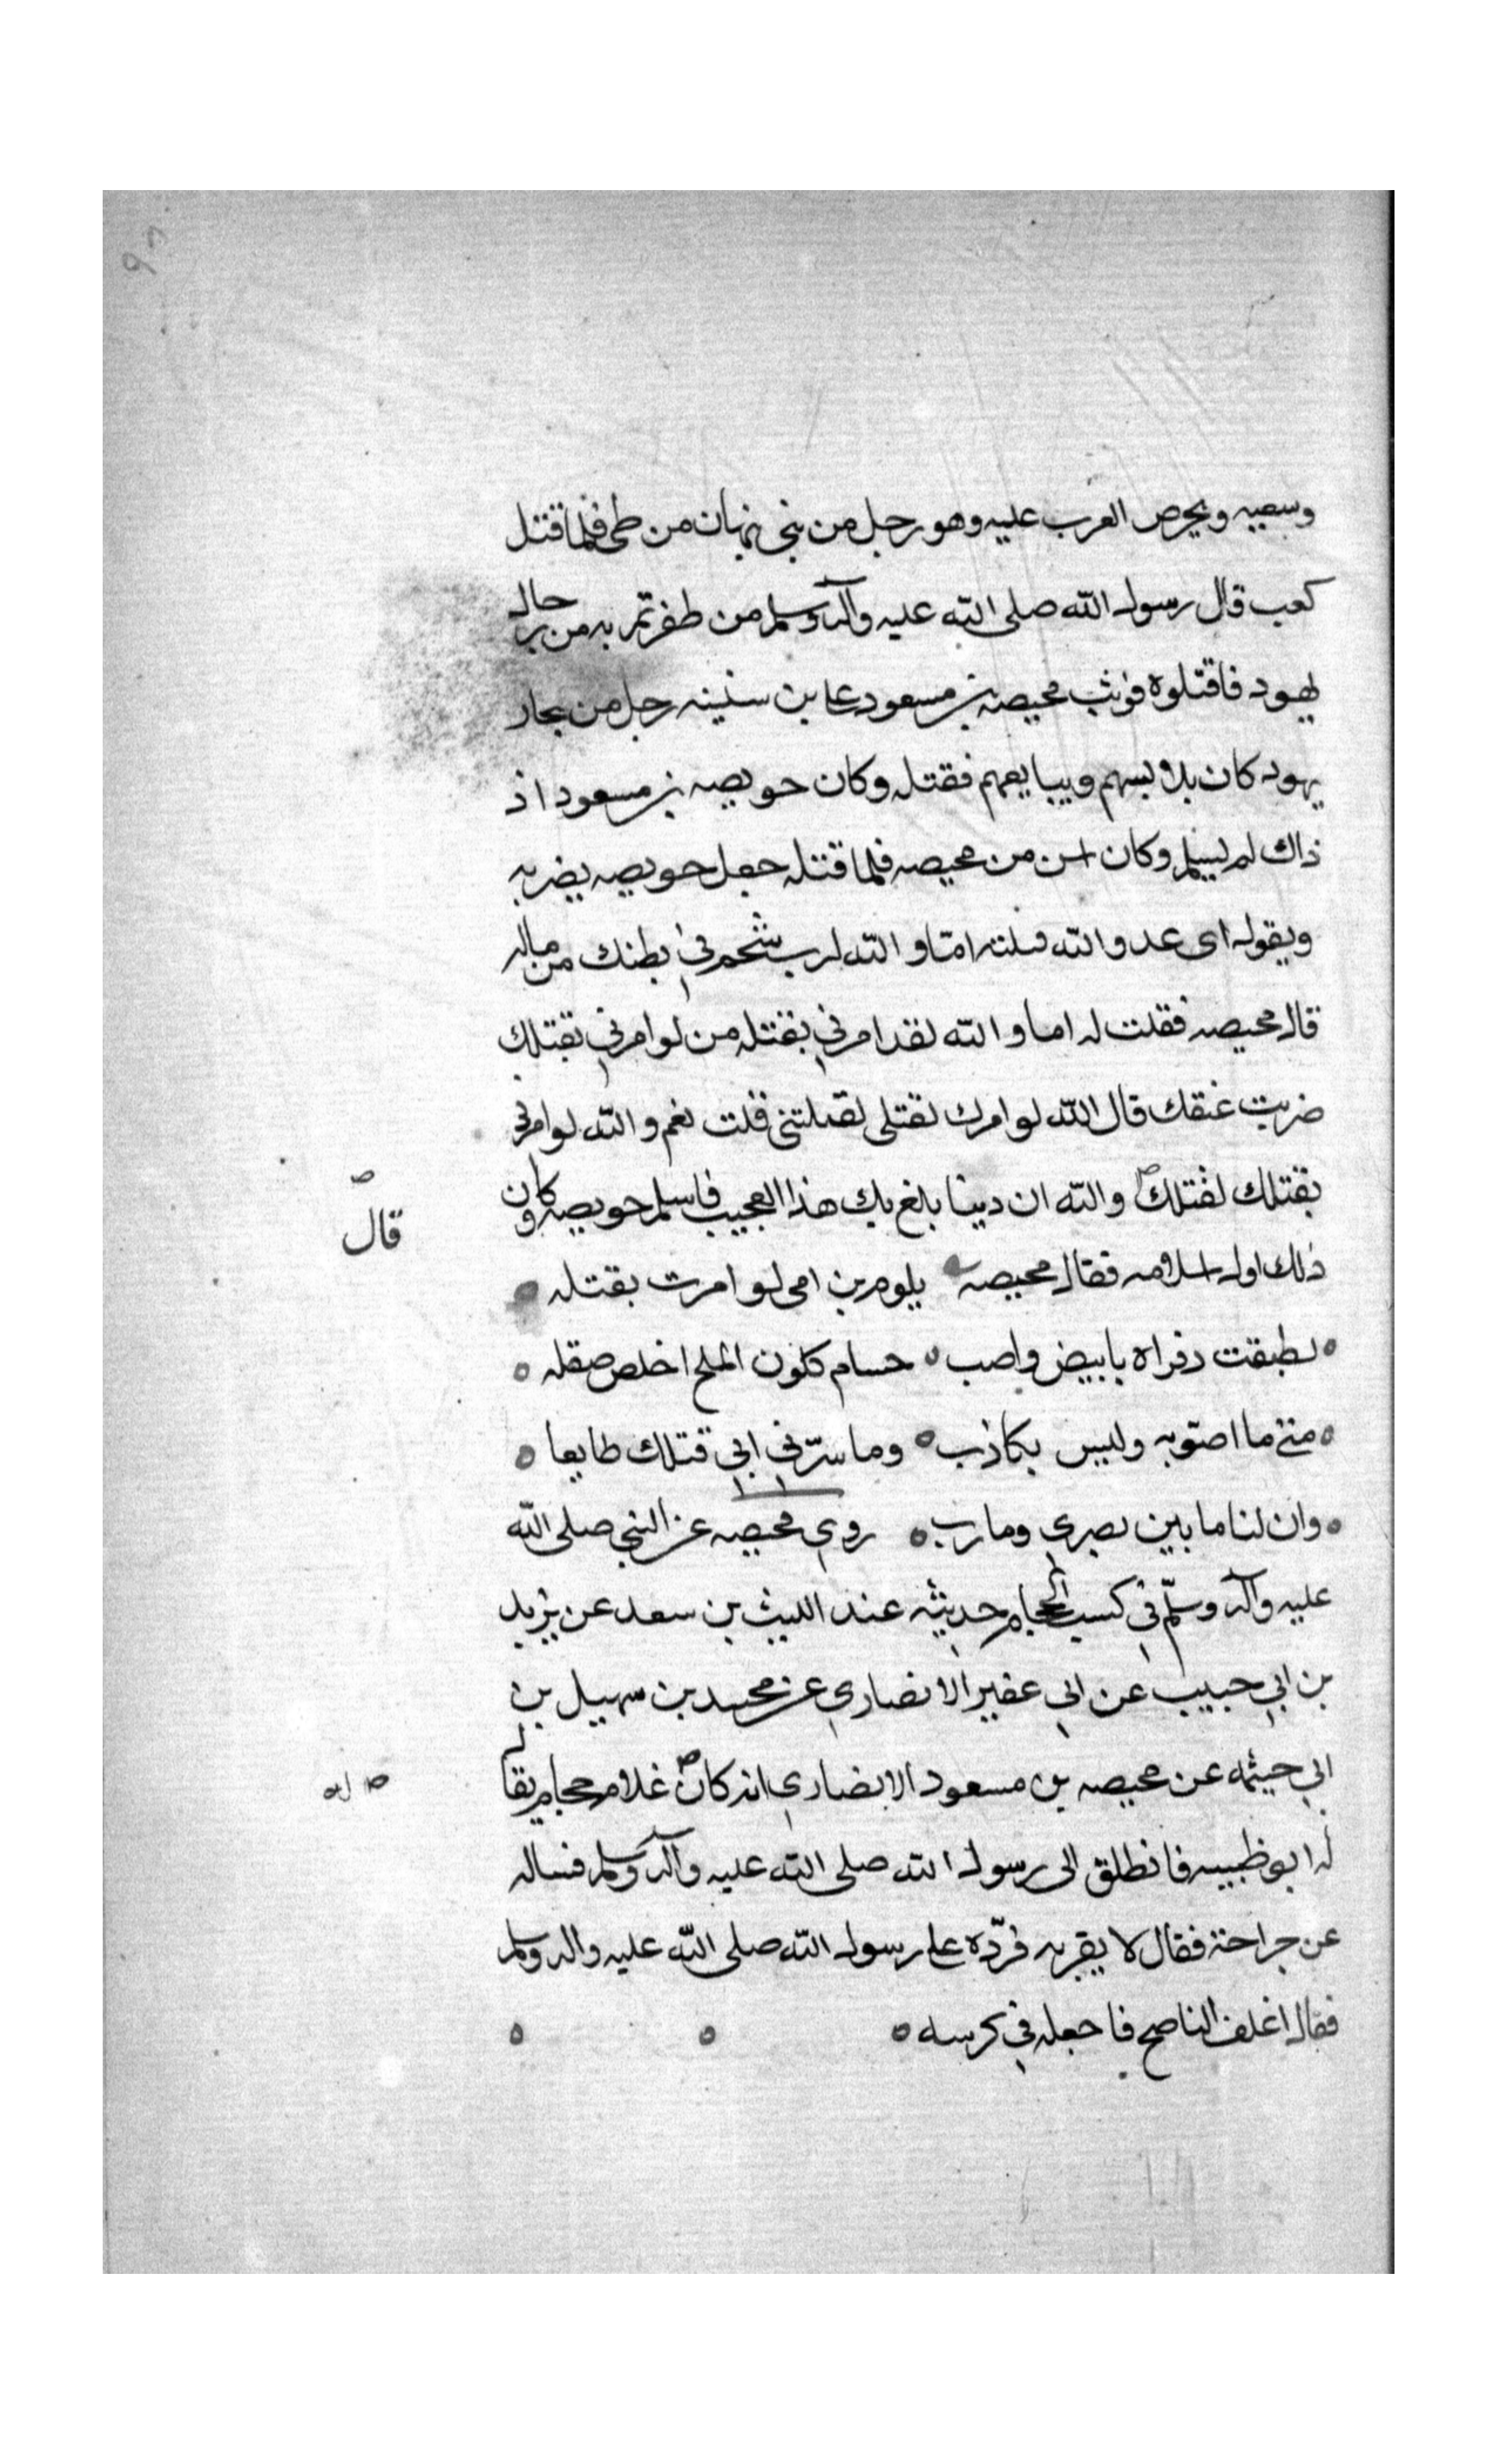 وسعيه ويحرص العرب عليه وهو رجل من بنى نبهان من طى فلما قتل
كعب قال رسول الله صلى الله عليه وآله وسلم من ظفرتم به من رجال
يهود فاقتلوه فوثب محيصه بن مسعود على بن سنينه رجل من تجار
يهود كان يلابسهم ويبايعهم فقتله وكان حويصه بن مسعود اذ
ذاك لم يسلم وكان اسن من محيصه فلما قتله جعل حويصه يضربه
ويقول اى عدو الله قتلته اما والله لرب شحم في بطنك من ماله
قال محيصه فقلت له اما والله لقد امرني بقتله من لو امرني بقتلك
ضربت عنقك قال الله لو امرك بقتلى لقتلتنى قلت نعم والله لو امرنى
بقتلك لقتلتك والله ان دينا بلغ بك هذا العجيب فاسلم حويصه وكان
قال
ذلك اول اسلامه فقال محيصه يلوم بن امى لو امرت بقتله
لطبقت دفراه بابيض واصب حسام كلون الملح اخلص صقله
متى ما اصوبه وليس بكاذب وما سرّني اني قتلك طايعا
وان لنا ما بين بصرى ومارب روى محيصه عن النبي صلى الله
عليه وآله وسلّم في كسب الحجام حديثه عند الليث بن سعد عن يزيد
بن ابي حبيب عن ابي عفير الانصاري عن محمد بن سهيل بن
ابي حيثمه عن محيصه بن مسعود الانصاري انه كان غلام حجام يقال
له
له ابو ظبيبه فانطلق الى رسول الله صلى الله عليه وآله وسلم فساله
عن جراحته فقال لا يقربه فردّه على رسول الله صلى الله عليه واله وسلم
فقال اغلف الناصح فاجعله في كرسه